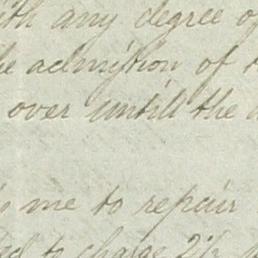 with any degree of
the admition of
over untill the
to me to repair
to charge